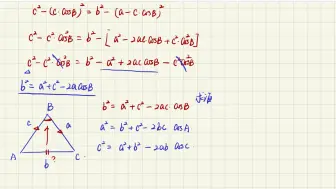 c² - (c·cosB)² = b² - (a - c·cosB)²
c² - c²·cos²B = b² - [a² - 2ac·cosB + c²·cos²B]
c² - c²·cos²B = b² - a² + 2ac·cosB - c²·cos²B
b² = a² + c² - 2acosB
b² = a² + c² - 2ac·cosB
a² = b² + c² - 2bc·cosA
c² = a² + b² - 2ab·cosC
B
c
a
A
b
?
C